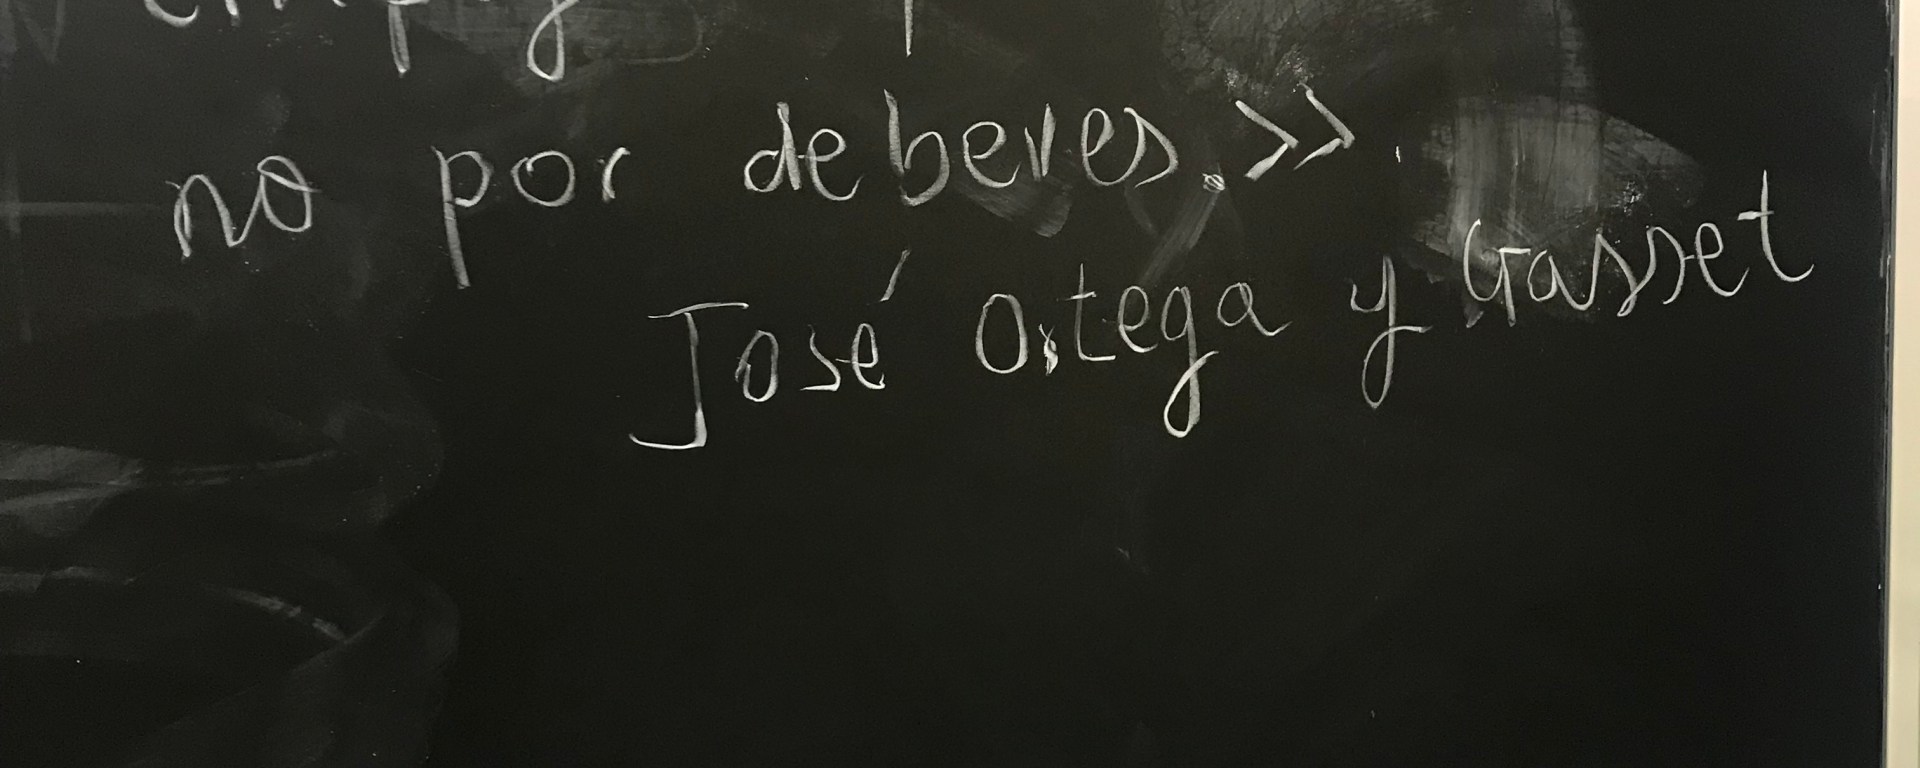 no por deberes.»
José Ortega y Gasset